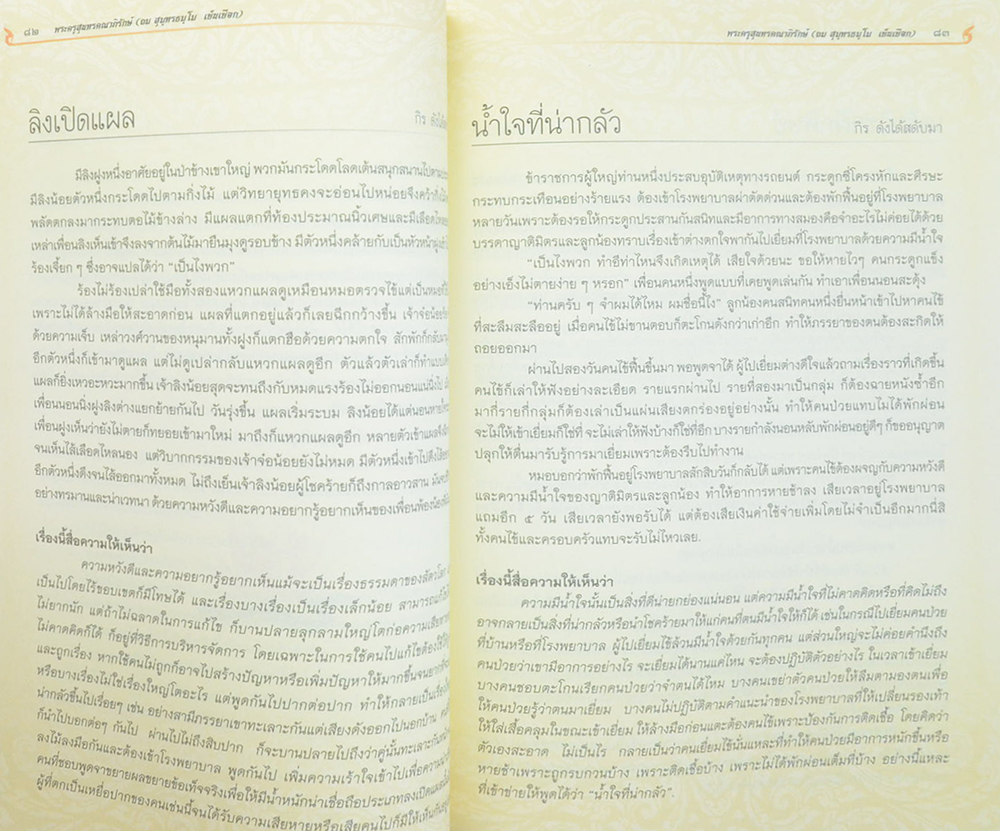 ๘๒ พระครูสุนทรคณาภิรักษ์ (ถม สุนฺทรธมฺโม เข็มเพ็ชก)
ลิงเปิดแผล
กิร ดังได้
มีลิงฝูงหนึ่งอาศัยอยู่ในป่าข้างเขาใหญ่ พวกมันกระโดดโลดเต้นสนุกสนานไปตาม
มีลิงน้อยตัวหนึ่งกระโดดไปตามกิ่งไม้ แต่วิทยายุทธคงจะอ่อนไปหน่อยจึงคว้า
พลัดตกลงมากระทบตอไม้ข้างล่าง มีแผลแตกที่ท้องประมาณนิ้วเศษและมีเลือด
เหล่าเพื่อนลิงเห็นเข้าจึงลงจากต้นไม้มายืนมุงดูรอบข้าง มีตัวหนึ่งคล้ายกับเป็นหัวหน้า
ร้องเจี๊ยก ๆ ซึ่งอาจแปลได้ว่า “เป็นไงพวก”
ร้องไม่ร้องเปล่าใช้มือทั้งสองแหวกแผลดูเหมือนหมอตรวจไข้แต่เป็นหมอ
เพราะไม่ได้ล้างมือให้สะอาดก่อน แผลที่แตกอยู่แล้วก็เลยฉีกกว้างขึ้น เจ้าจ๋อน้อย
ด้วยความเจ็บ เหล่าวงศ์วานของหนุมานทั้งฝูงก็แตกฮือด้วยความตกใจ สักพักก็กลับ
อีกตัวหนึ่งก็เข้ามาดูแผล แต่ไม่ดูเปล่ากลับแหวกแผลดูอีก ตัวแล้วตัวเล่าก็ทำ
แผลก็ยิ่งเหวอะหวะมากขึ้น เจ้าลิงน้อยสุดจะทนถึงกับหมดแรงร้องไม่ออกนอนแน่นิ่งไป
เพื่อนนอนนิ่งฝูงลิงต่างแยกย้ายกันไป วันรุ่งขึ้น แผลเริ่มระบม ลิงน้อยได้แต่นอน
เพื่อนฝูงเห็นว่ายังไม่ตายก็ทยอยเข้ามาใหม่ มาถึงก็แหวกแผลดูอีก หลายตัวเข้าแผล
จนเห็นไส้เลือดไหลนอง แต่วิบากกรรมของเจ้าจ๋อน้อยยังไม่หมด มีตัวหนึ่งเข้าไปดึงไส้
อีกตัวหนึ่งดึงจนไส้ออกมาทั้งหมด ไม่ถึงเย็นเจ้าลิงน้อยผู้โชคร้ายก็ถึงกาลอวสาน
อย่างทรมานและน่าเวทนา ด้วยความหวังดีและความอยากรู้อยากเห็นของเพื่อนพ้อง
เรื่องนี้สื่อความให้เห็นว่า
ความหวังดีและความอยากรู้อยากเห็นแม้จะเป็นเรื่องธรรมดาของสัตว์โลก
เป็นไปโดยไร้ขอบเขตก็มีโทษได้ และเรื่องบางเรื่องเป็นเรื่องเล็กน้อย สามารถ
ไม่ยากนัก แต่ถ้าไม่ฉลาดในการแก้ไข ก็บานปลายลุกลามใหญ่โตก่อความ
ไม่คาดคิดก็ได้ ก็อยู่ที่วิธีการบริหารจัดการ โดยเฉพาะในการใช้คนไปแก้ไขต้อง
และถูกเรื่อง หากใช้คนไม่ถูกก็อาจไปสร้างปัญหาหรือเพิ่มปัญหาให้มากขึ้นจน
หรือบางเรื่องไม่ใช่เรื่องใหญ่โตอะไร แต่พูดกันไปปากต่อปาก ทำให้กลายเป็นเรื่อง
น่ากลัวขึ้นไปเรื่อยๆ เช่น อย่างสามีภรรยาเขาทะเลาะกันแต่เสียงดังออกไปนอกบ้าน
ก็นำไปบอกต่อๆ กันไป ผ่านไปไม่ถึงสิบปาก ก็จะบานปลายไปถึงว่าคู่นั้นทะเลาะกัน
ลงไม้ลงมือกันและต้องเข้าโรงพยาบาล พูดกันไป เพิ่มความเร้าใจเข้าไปเพื่อความ
คนที่ชอบพูดจาขยายผลขยายข้อเท็จจริงเพื่อให้มีน้ำหนักน่าเชื่อถือประเภทลงเปิดแผล
ผู้ที่ตกเป็นเหยื่อปากของคนเช่นนี้จนได้รับความเสียหายหรือเสียคนไปก็มีให้เห็นกัน
พระครูสุนทรคณาภิรักษ์ (ถม สุนฺทรธมฺโม เข็มเพ็ชก) ๘๓
น้ำใจที่น่ากลัว
กิร ดังได้สดับมา
ข้าราชการผู้ใหญ่ท่านหนึ่งประสบอุบัติเหตุทางรถยนต์ กระดูกซี่โครงหักและศีรษะ
กระทบกระเทือนอย่างร้ายแรง ต้องเข้าโรงพยาบาลผ่าตัดด่วนและต้องพักฟื้นอยู่ที่โรงพยาบาล
หลายวันเพราะต้องรอให้กระดูกประสานกันสนิทและมีอาการทางสมองคือจำอะไรไม่ค่อยได้ด้วย
บรรดาญาติมิตรและลูกน้องทราบเรื่องเข้าต่างตกใจพากันไปเยี่ยมที่โรงพยาบาลด้วยความมีน้ำใจ
“เป็นไงพวก ทำอีท่าไหนจึงเกิดเหตุได้ เสียใจด้วยนะ ขอให้หายไวๆ คนกระดูกแข็ง
อย่างเอ็งไม่ตายง่าย ๆ หรอก” เพื่อนคนหนึ่งพูดแบบที่เคยพูดเล่นกัน ทำเอาเพื่อนนอนสะดุ้ง
“ท่านครับ ๆ จำผมได้ไหม ผมชื่อนี้ไง” ลูกน้องคนสนิทคนหนึ่งยื่นหน้าเข้าไปหาคนไข้
ที่สะลึมสะลืออยู่ เมื่อคนไข้ไม่ขานตอบก็ตะโกนดังกว่าเก่าอีก ทำให้ภรรยาของตนต้องสะกิดให้
ถอยออกมา
ผ่านไปสองวันคนไข้ฟื้นขึ้นมา พอพูดจาได้ ผู้ไปเยี่ยมต่างดีใจแล้วถามเรื่องราวที่เกิดขึ้น
คนไข้ก็เล่าให้ฟังอย่างละเอียด รายแรกผ่านไป รายที่สองมาเป็นกลุ่ม ก็ต้องฉายหนังซ้ำอีก
มากี่รายกี่กลุ่มก็ต้องเล่าเป็นแผ่นเสียงตกร่องอยู่อย่างนั้น ทำให้คนป่วยแทบไม่ได้พักผ่อน
จะไม่ให้เข้าเยี่ยมก็ใช่ที่ จะไม่เล่าให้ฟังบ้างก็ใช่ที่อีก บางรายกำลังนอนหลับพักผ่อนอยู่ดีๆ ก็ขออนุญาต
ปลุกให้ตื่นมารับรู้การมาเยี่ยมเพราะต้องรีบไปทำงาน
หมอบอกว่าพักฟื้นอยู่โรงพยาบาลสักสิบวันก็กลับได้ แต่เพราะคนไข้ต้องผจญกับความหวังดี
และความมีน้ำใจของญาติมิตรและลูกน้อง ทำให้อาการหายช้าลง เสียเวลาอยู่โรงพยาบาล
แถมอีก ๕ วัน เสียเวลายังพอรับได้ แต่ต้องเสียเงินค่าใช้จ่ายเพิ่มโดยไม่จำเป็นอีกมากนี่สิ
ทั้งคนไข้และครอบครัวแทบจะรับไม่ไหวเลย.
เรื่องนี้สื่อความให้เห็นว่า
ความมีน้ำใจนั้นเป็นสิ่งที่ดีน่ายกย่องแน่นอน แต่ความมีน้ำใจที่ไม่คาดคิดหรือที่คิดไม่ถึง
อาจกลายเป็นสิ่งที่น่ากลัวหรือนำโชคร้ายมาให้แก่คนที่ตนมีน้ำใจให้ก็ได้ เช่นในกรณีไปเยี่ยมคนป่วย
ที่บ้านหรือที่โรงพยาบาล ผู้ไปเยี่ยมไข้ล้วนมีน้ำใจด้วยกันทุกคน แต่ส่วนใหญ่จะไม่ค่อยคำนึงถึง
คนป่วยว่าเขามีอาการอย่างไร จะเยี่ยมได้นานแค่ไหน จะต้องปฏิบัติตัวอย่างไร ในเวลาเข้าเยี่ยม
บางคนชอบตะโกนเรียกคนป่วยว่าจำตนได้ไหม บางคนเขย่าตัวคนป่วยให้ลืมตามองตนเพื่อ
ให้คนป่วยรู้ว่าตนมาเยี่ยม บางคนไม่ปฏิบัติตามคำแนะนำของโรงพยาบาลที่ให้เปลี่ยนรองเท้า
ให้ใส่เสื้อคลุมในขณะเข้าเยี่ยม ให้ล้างมือก่อนแตะต้องคนไข้เพราะป้องกันการติดเชื้อ โดยคิดว่า
ตัวเองสะอาด ไม่เป็นไร กลายเป็นว่าคนเยี่ยมไข้นั่นแหละที่ทำให้คนป่วยมีอาการหนักขึ้นหรือ
หายช้าเพราะถูกรบกวนบ้าง เพราะติดเชื้อบ้าง เพราะไม่ได้พักผ่อนเต็มที่บ้าง อย่างนี้แหละ
ที่เข้าข่ายให้พูดได้ว่า “น้ำใจที่น่ากลัว”.